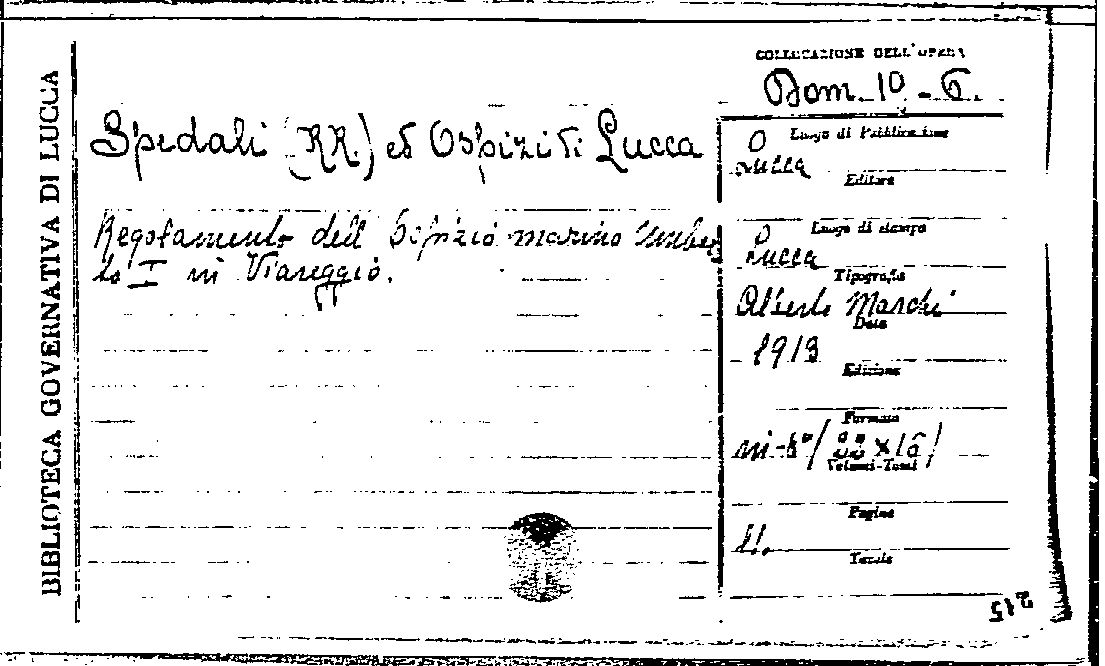 BIBLIOTECA GOVERNATIVA DI LUCCA
COLLOCAZIONE DELL'OPERA
Dom. 10 - 6.
Spedali (RR.) ed Ospizi di Lucca
Regolamento dell'Ospizio marino Umber
to I in Viareggio.
Luogo di Pubblicazione
Lucca
Editore
Luogo di stampa
Lucca
Tipografia
Alberto Marchi
Data
1913
Edizione
Formato
in-8°/22×16/
Volumi-Tomi
Pagine
11.
Tavole
215